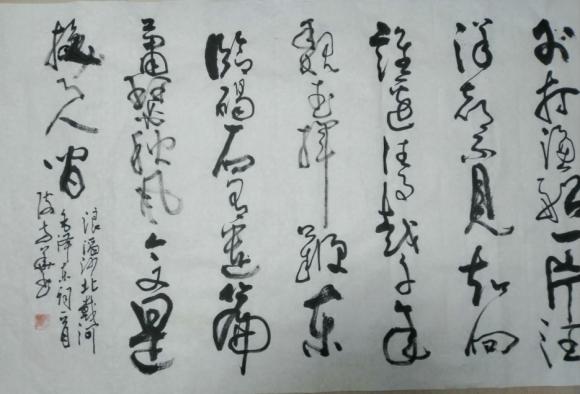 外打渔船一片汪
洋都不见知向
谁边往事越千年
魏武挥鞭东
临碣石有遗篇
萧瑟秋风今又是
换了人间
浪淘沙北戴河
毛泽东词一首